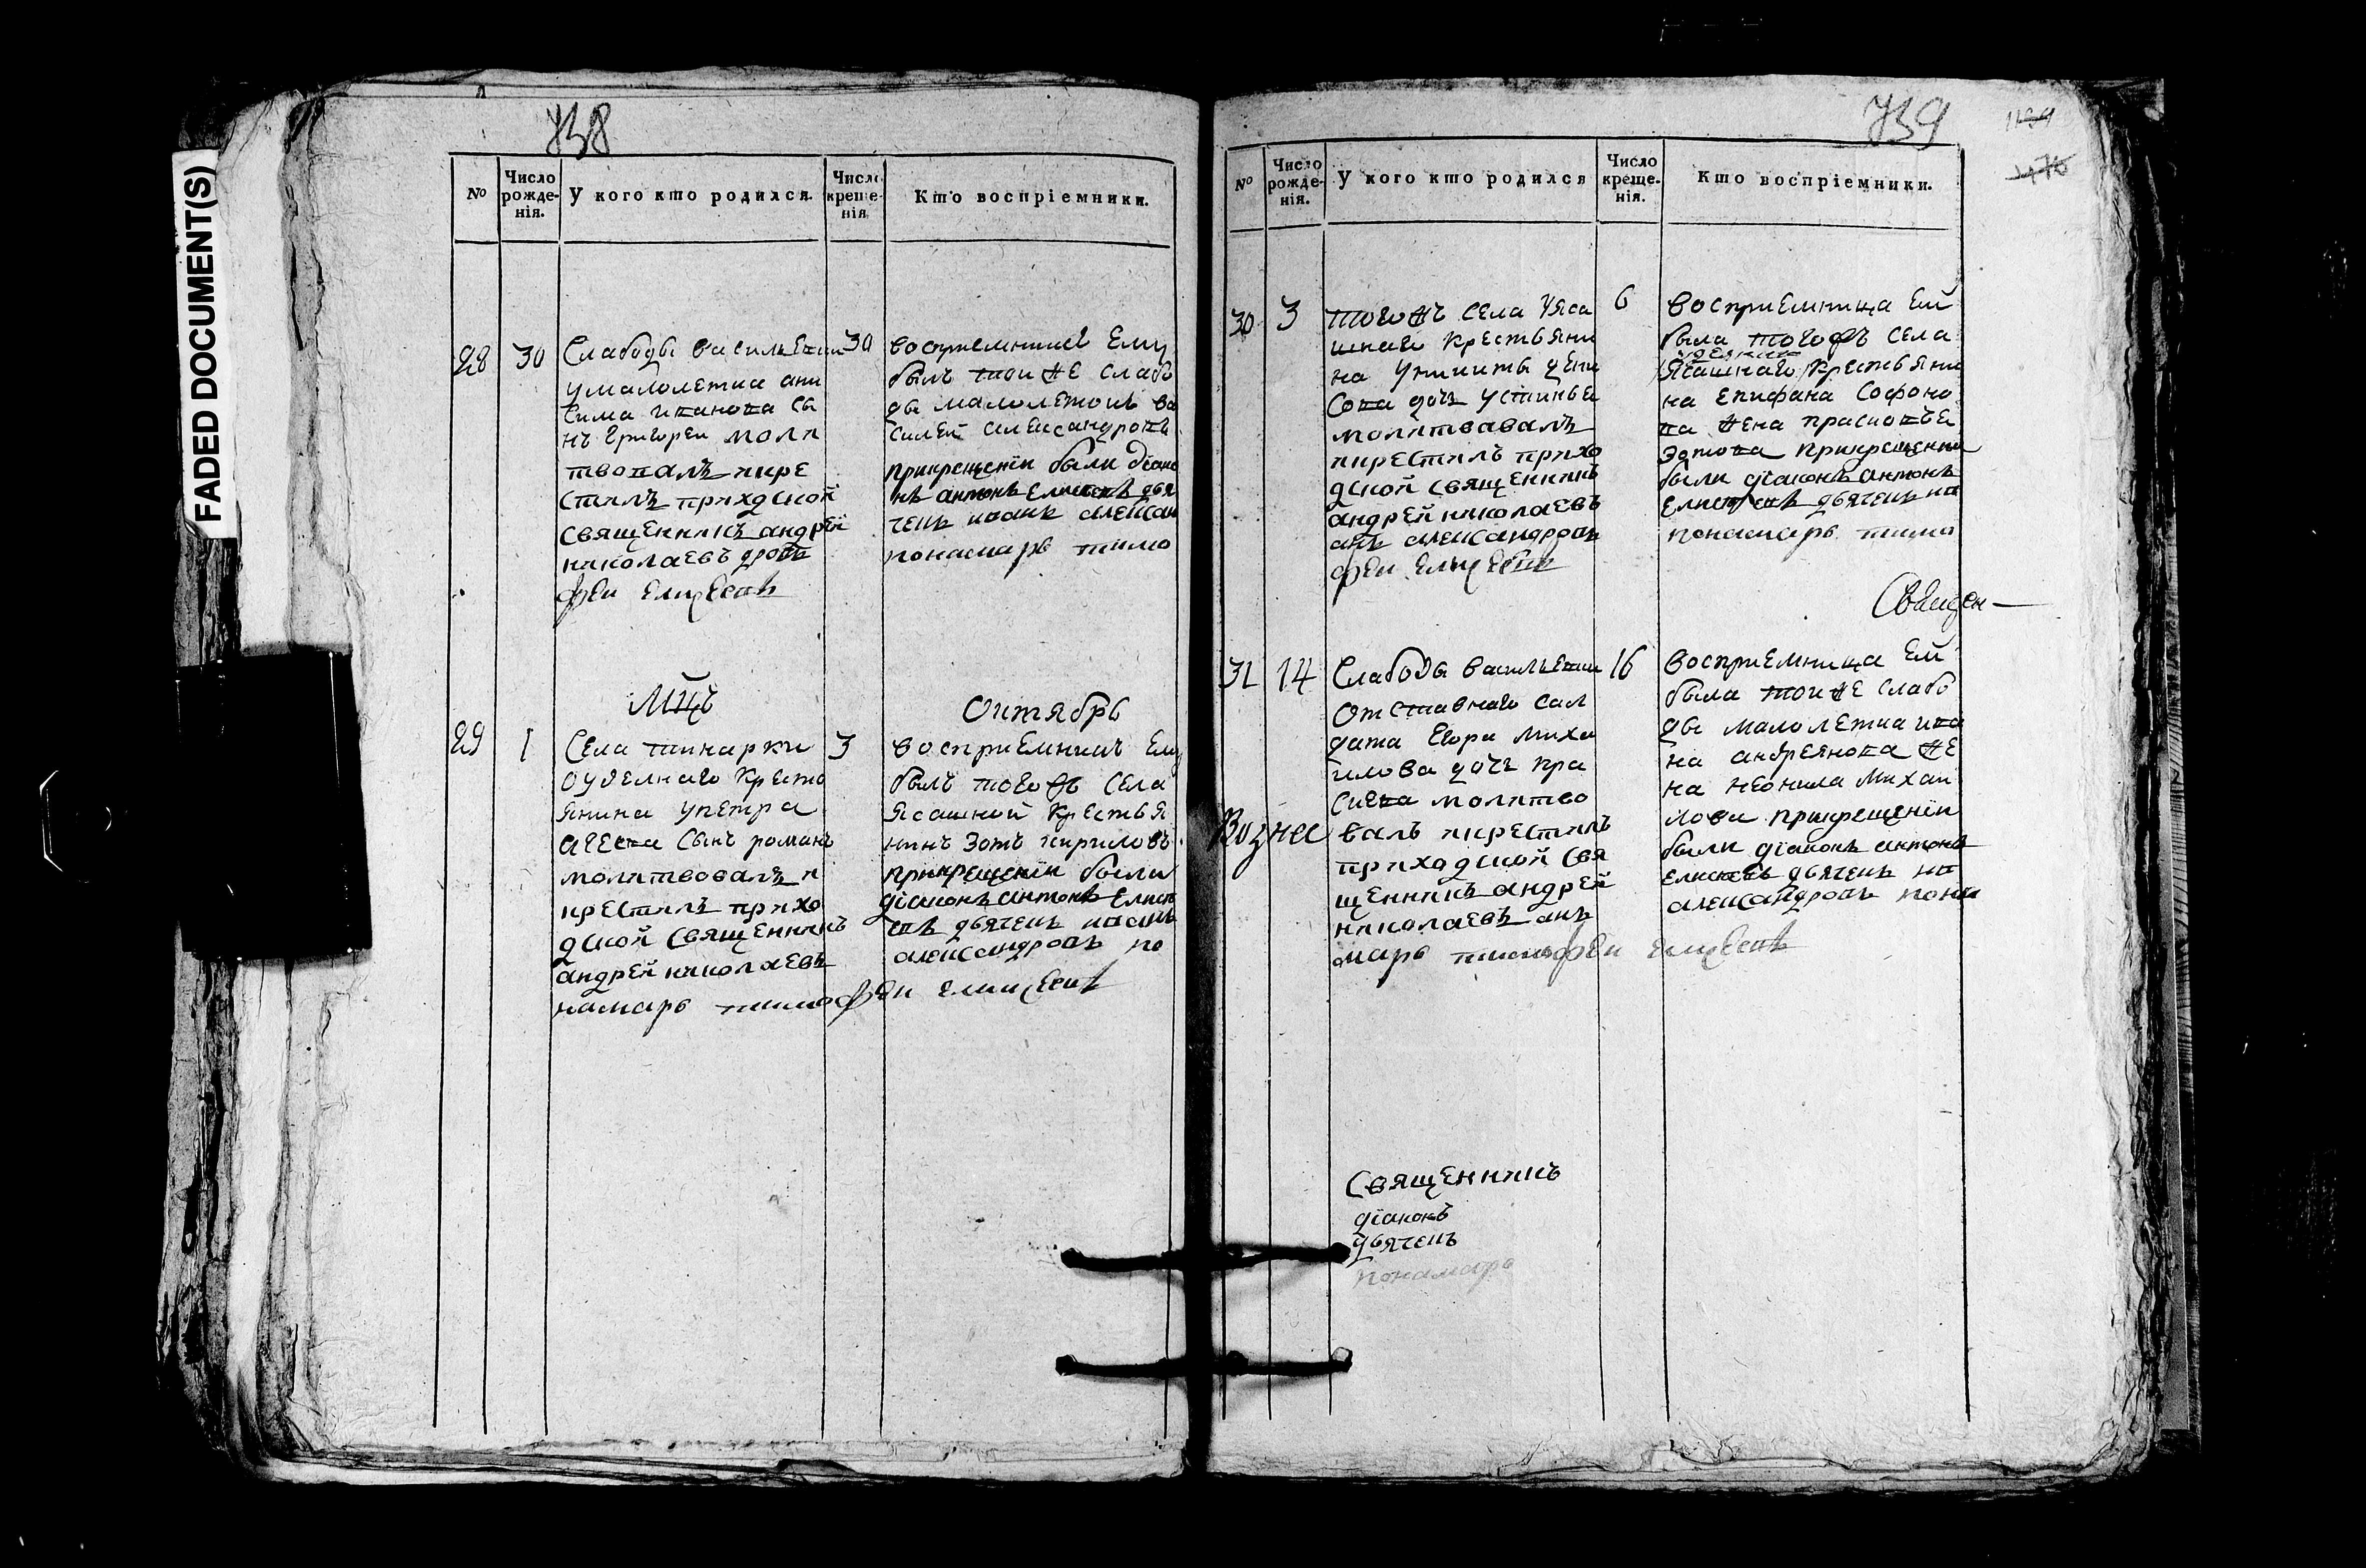 FADED DOCUMENT(S)
738
№
Число рожде-нія.
У кого кто родился.
Число креще-нія
Кто воспріемники.
28
30
Слабоды василъевки
у малолетка ани
сима иванова сы
нъ Григореи моли
твовалъ икре
стилъ приходской
священникъ андрей
николаевъ дровъ
феи елисеевъ
30
восприемникъ ему
былъ тои же слабо
ды малолетокъ ва
силеи александровъ
прикрещенїи были дїако
нъ антонъ елисеевъ дья
чекъ иванъ алексан
понамарь тимо
Мцъ
Октябрь
29
1
Села тинарки
оуделнаго кресть
янина у петра
агеева сынъ романъ
молитвовалъ и
крестилъ прихо
дской священникъ
андрей николаевъ
намарь тимофеи елисеевъ
3
восприемникъ ему
былъ тогожъ села
ясашной крестья
нинъ зотъ кириловъ
прикрещенїи были
дїаконъ антонъ елисе
евъ дьячекъ иванъ
александровъ по
739
1139
476
№
Число рожде-нія.
У кого кто родился
Число креще-нія.
Кто воспріемники.
30
3
тогожъ села уяса
шнаго крестьяни
на уникиты дени
сова дочь устинья
молитвавалъ
икрестилъ прихо
дской священникъ
андрей николаевъ
анъ александровъ
феи елисеевъ
6
восприемница ей
была тогожъ села
ясашнаго крестьяни
на епифана софоно
ва жена прасковья
эотова прикрещенїи
были дїаконъ антонъ
елисеевъ дьячекъ ив
понамарь тимо
Священ—
31
14
Слабоды василъевки
отставнаго сал
дата Егора миха
илова дочь пра
скева молитво
валъ икрестилъ
приходской свя
щенникъ андрей
николаевъ анъ
марь тимофеи елисеевъ
Вознес
16
восприемница ей
была тои же слабо
ды малолетка ива
на андреянова же
на неонила михаи
лова прикрещенїи
были дїаконъ антонъ
елисеевъ дьячекъ ив
александровъ пона
Священникъ
дїаконъ
дьячекъ
понамарь